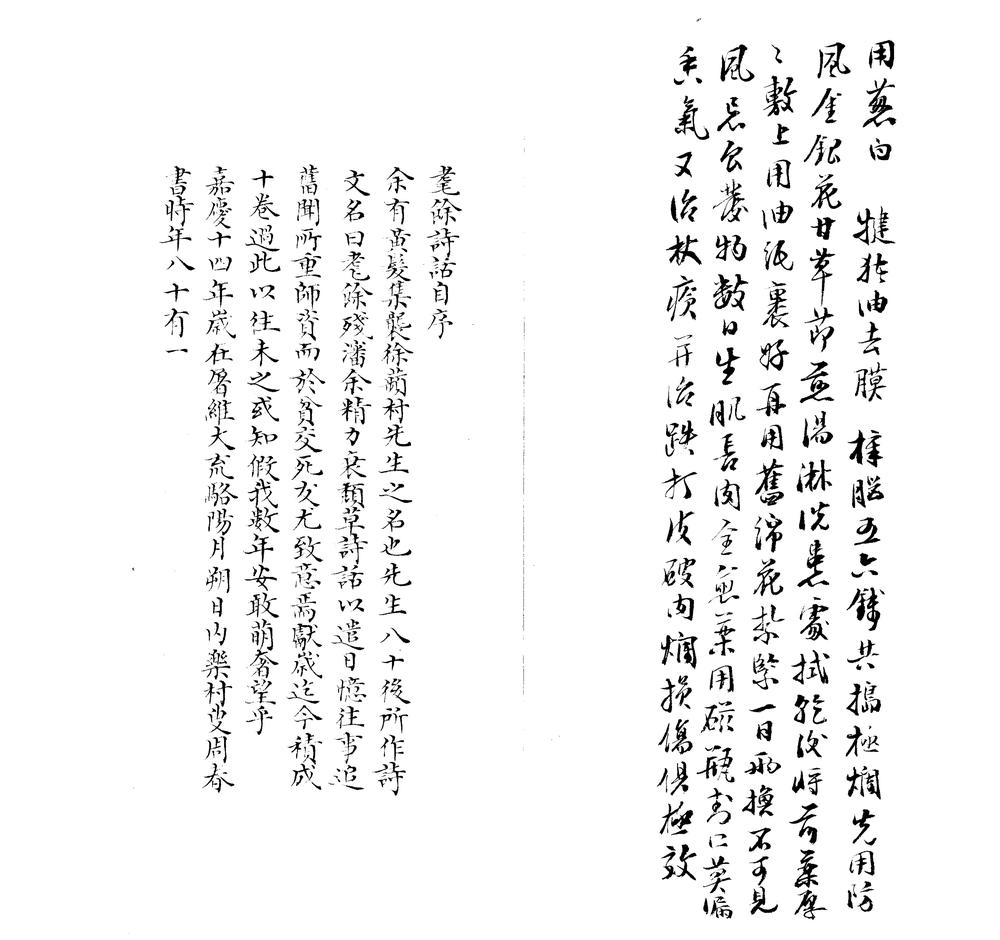 用葱白 揵猪油去膜 樟腦五六錢共搗極爛先用防
風金銀花甘草節煎湯淋洗患處拭乾後將前藥厚
〻敷上用油紙裹好再用舊綿花紮緊一日兩換不可見
風忌食發物數日生肌長肉全愈藥用磁瓶封口莫漏
香氣又治杖瘡并治跌打皮破肉爛損傷俱極效
耄餘詩話自序
余有黃髮集襲徐蘋村先生之名也先生八十後所作詩
文名曰耄餘殘瀋余精力衰頹草詩話以遣日憶往事追
舊聞所重師資而於貧交死友尤致意焉獻歲迄今積成
十卷過此以往未之或知假我數年安敢萌奢望乎
嘉慶十四年歲在屠維大荒駱陽月朔日內樂村叟周春
書時年八十有一